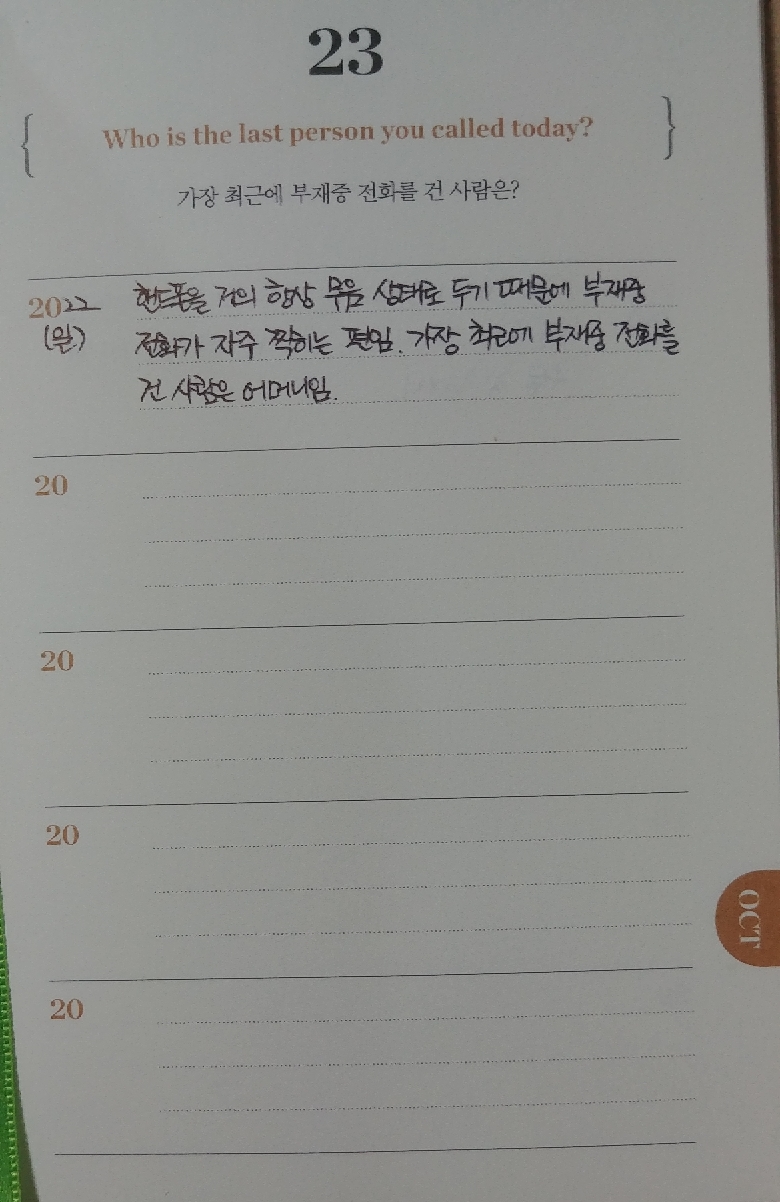 23
Who is the last person you called today?
가장 최근에 부재중 전화를 건 사람은?
2022 핸드폰을 거의 항상 묵음 상태로 두기 때문에 부재중
(일) 전화가 자주 찍히는 편임. 가장 최근에 부재중 전화를
건 사람은 어머니임.
20
20
20
OCT
20